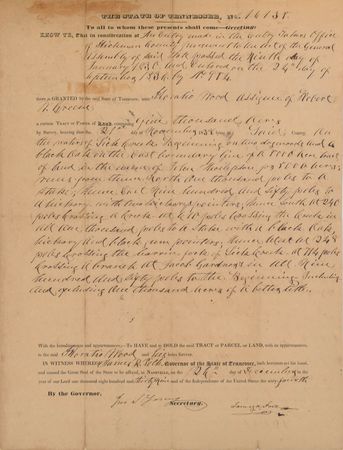 THE STATE OF TENNESSEE, No. 16131.
To all to whom these presents shall come—Greeting:
KNOW YE, That in consideration of An Entry made in the Entry Takers Office
of Hickman County, pursuant to an act of the General
Assembly of said State passed the Ninth day of
January 1830 and Entered on the 24th day of
September 1836 by No. 984
there is GRANTED by the said State of Tennessee, unto
Horatio Wood assignee of Robert
A. Greene
a certain Tract or Parcel of Land, containing five thousand acres
by Survey, bearing date the 21st day of November 1836 lying in said County. On
the waters of Lick Creek Beginning on two dogwoods and a
black oak on the East boundary line of a 5000 acre tract
of land in the name of John
runs thence North one thousand poles to a
stake; thence East Nine hundred and Sixty poles to
a hickory with two hickory pointers; thence South at 240
poles crossing a Creek at 610 poles crossing the Creek in
all one thousand poles to a Stake with a black Oak,
hickory and black gum pointers; thence West at 248
poles crossing the Lick Creek at 714 poles
crossing a branch at Jacob Gardners in all Nine
hundred and Sixty poles to the Beginning Including
and excluding one thousand acres of a better title.
With the hereditaments and appurtenances.—To HAVE and to HOLD the said TRACT or PARCEL or LAND, with its appurtenances,
to the said Horatio Wood and his heirs forever.
IN WITNESS WHEREOF, James K. Polk, Governor of the State of Tennessee, hath hereunto set his hand,
and caused the Great Seal of the State to be affixed, at NASHVILLE, on the 12th day of December in the
year of our Lord one thousand eight hundred and thirty Nine and of the Independence of the United States the
By the Governor.
Secretary.
James K. Polk